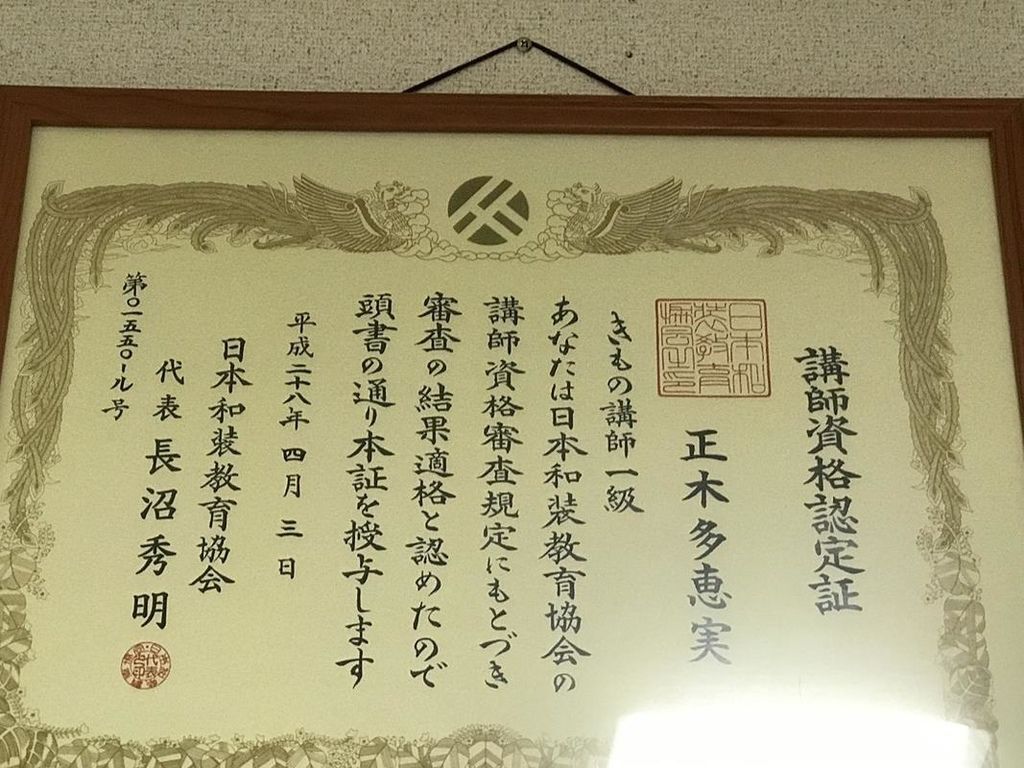 講師資格認定証
正木多恵実
きもの講師一級
あなたは日本和装教育協会の
講師資格審査規定にもとづき
審査の結果適格と認めたので
頭書の通り本証を授与します
平成二十八年四月三日
日本和装教育協会
代表 長沼秀明
第〇一五五〇ール号